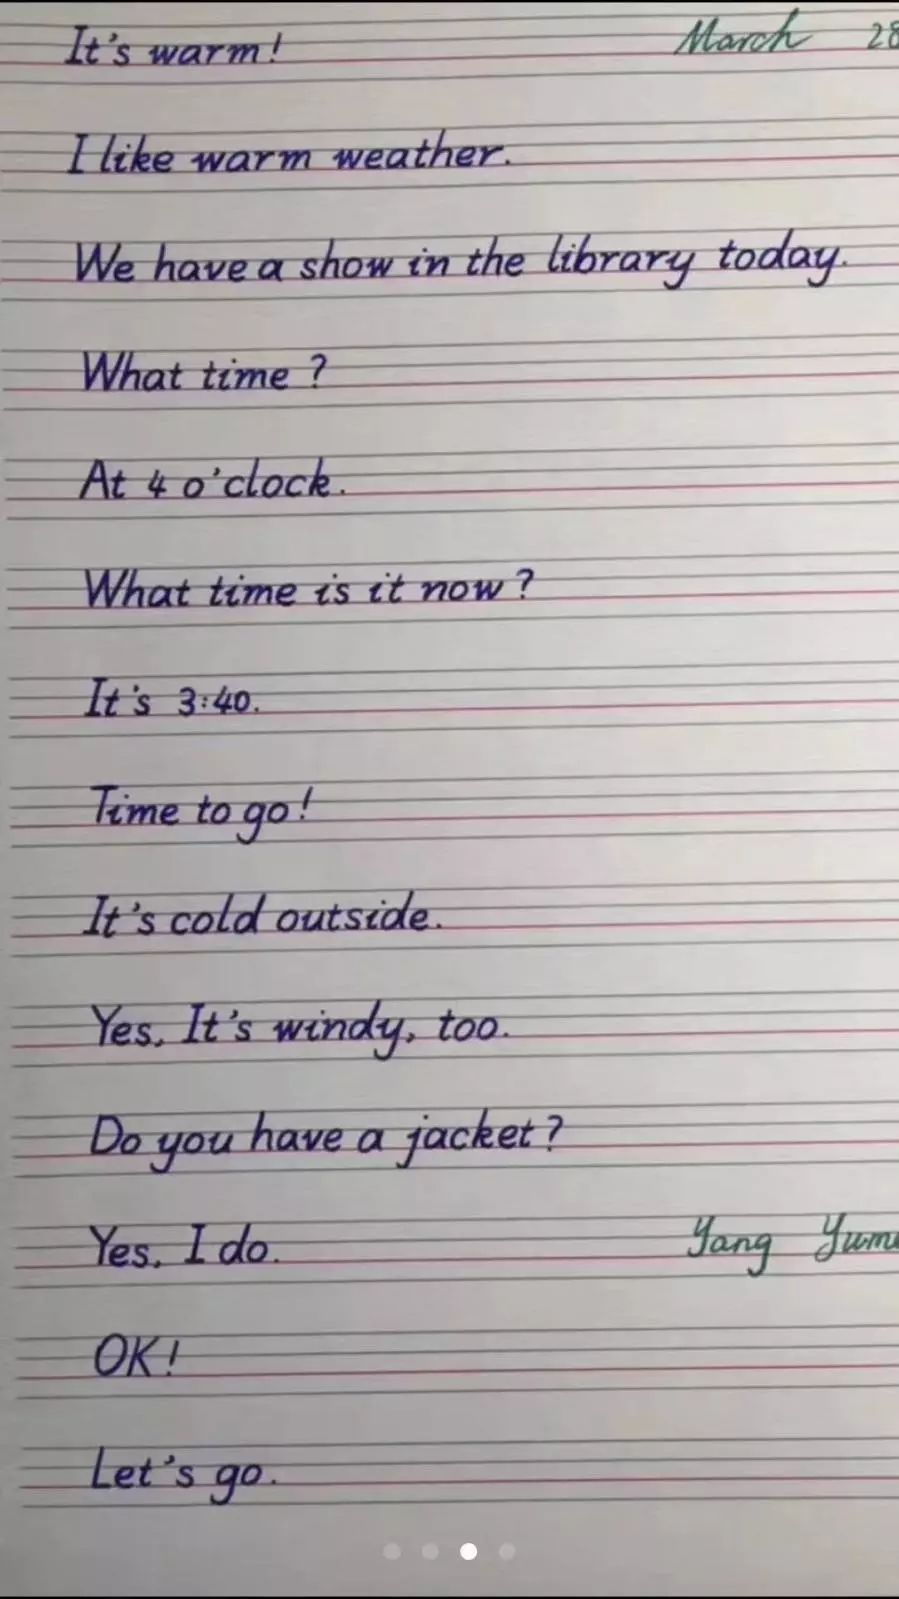 It's warm! March 28
I like warm weather.
We have a show in the library today.
What time?
At 4 o'clock.
What time is it now?
It's 3:40.
Time to go!
It's cold outside.
Yes. It's windy, too.
Do you have a jacket?
Yes. I do. Yang
OK!
Let's go.